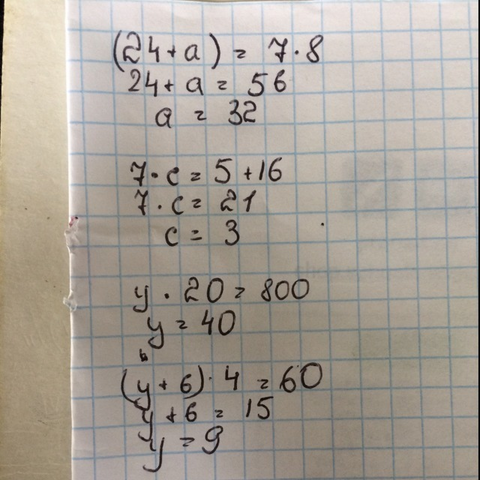 (24+a) = 7·8
24+a = 56
a = 32
7·c = 5+16
7·c = 21
c = 3
y · 20 = 800
y = 40
(y+6)·4 = 60
y+6 = 15
y = 9